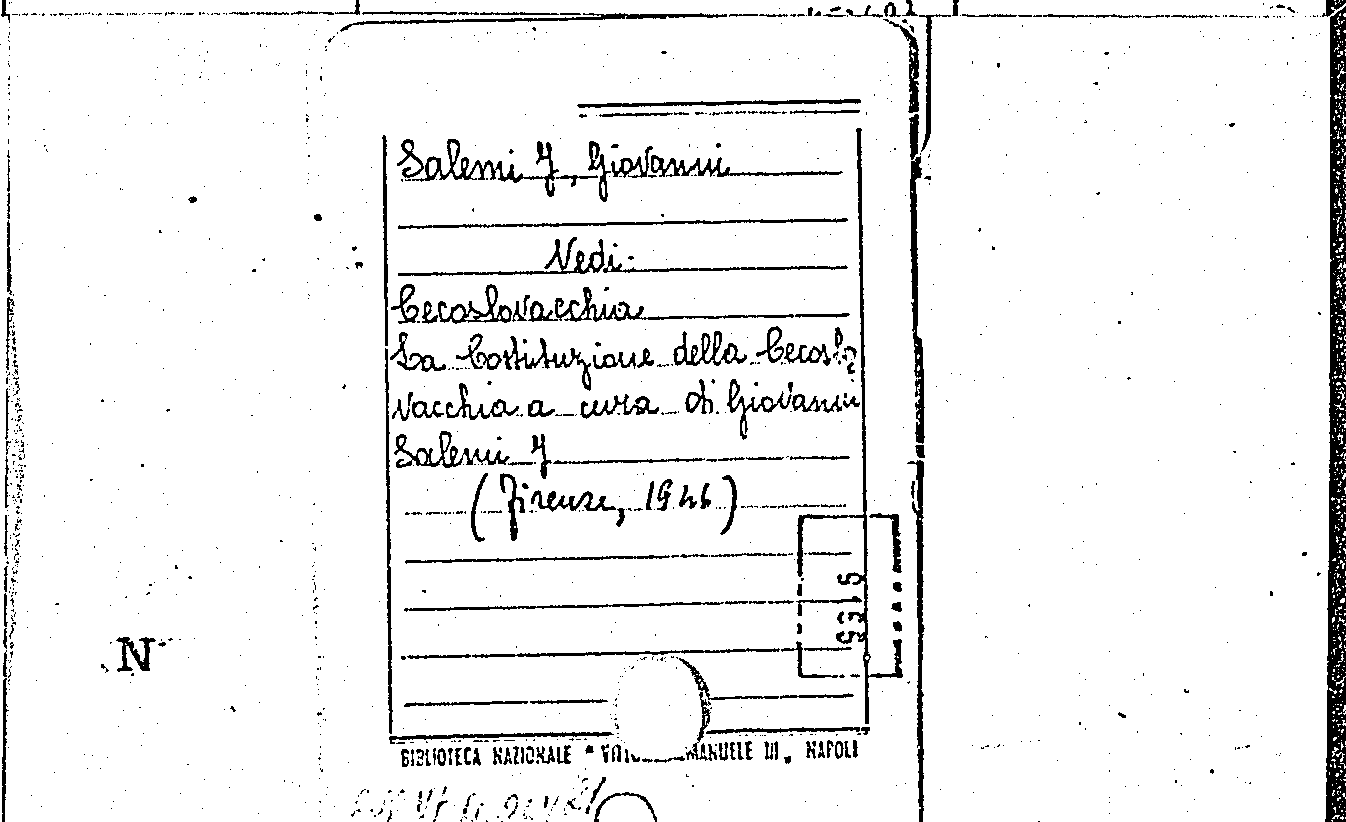 Salemi J, Giovanni
Vedi:
Cecoslovacchia
La Costituzione della Cecoslo
vacchia a cura di Giovanni
Salemi J
(Firenze, 1946)
BIBLIOTECA NAZIONALE "VITTO MANUELE III„ NAPOLI
N